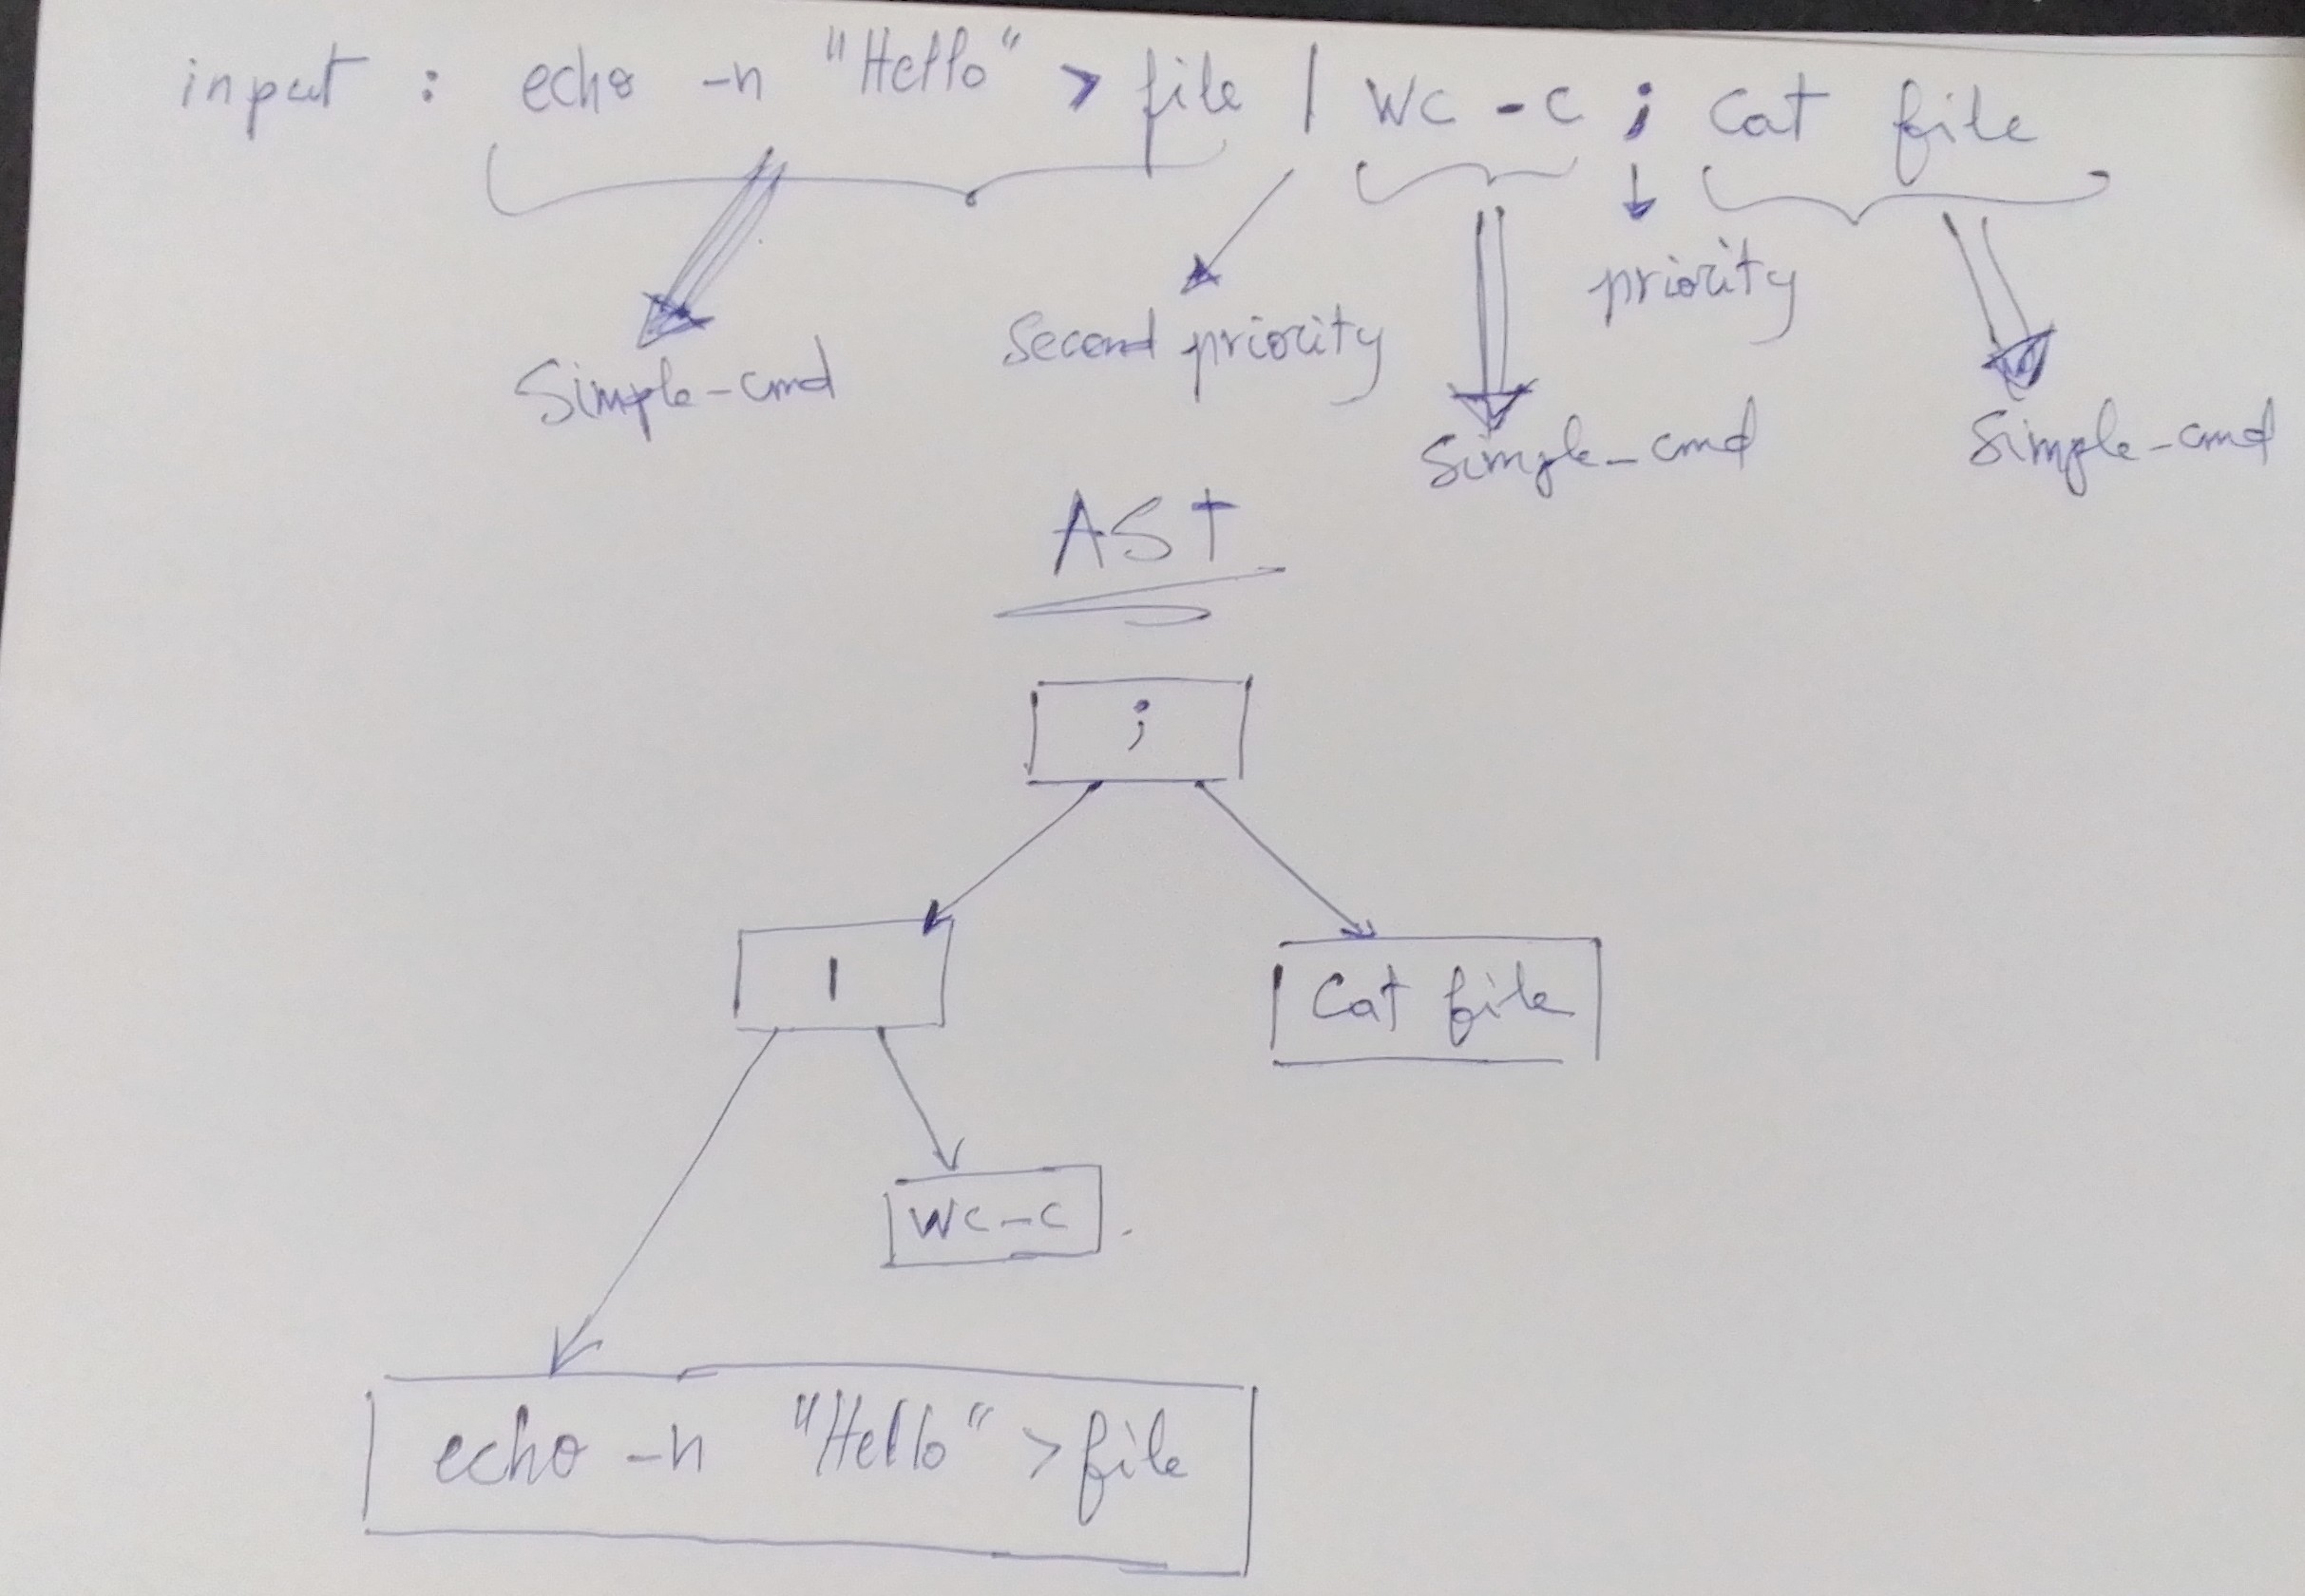 input : echo -n "Hello" > file | wc -c ; cat file
Simple-cmd
Second priority
Simple-cmd
priority
Simple-cmd
AST
;
|
Cat file
wc-c
echo -n "Hello" > file